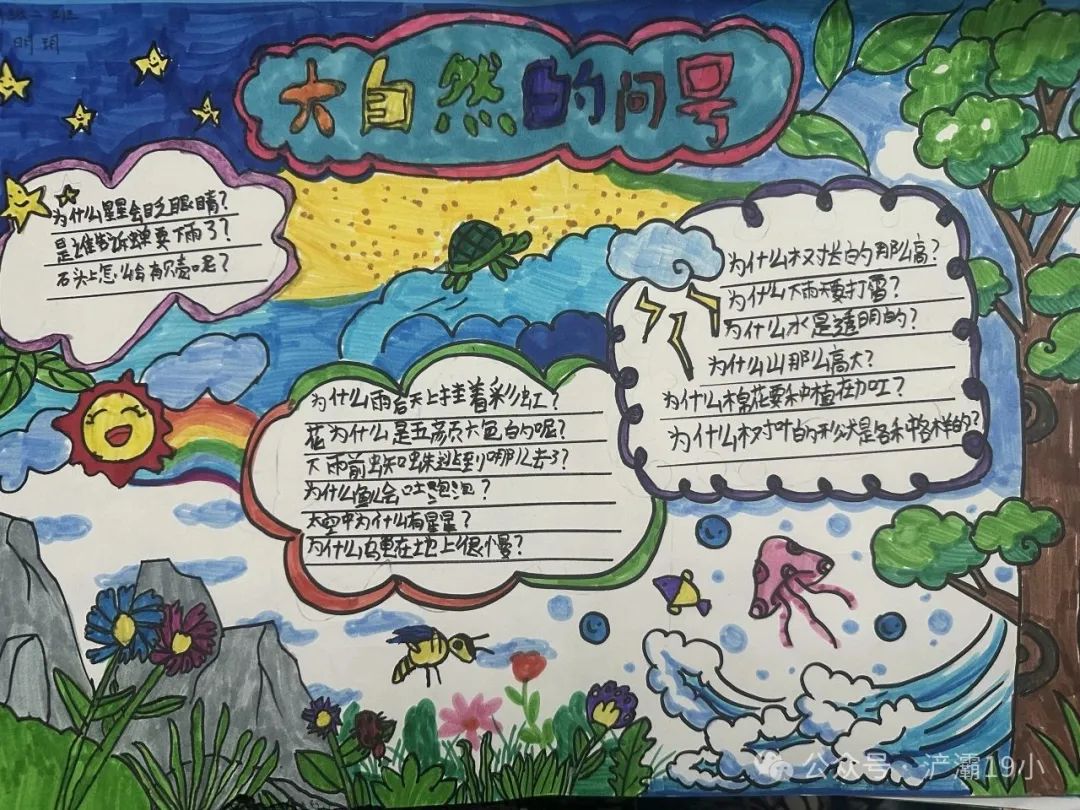 大自然的问号
为什么星星会眨眼睛?
是谁告诉蝉要下雨了?
石头上怎么会有贝壳呢?
为什么雨后天上挂着彩虹?
花为什么是五颜六色的呢?
下雨前蜘蛛跑到哪儿去了?
为什么鱼会吐泡泡?
太空中为什么有星星?
为什么乌龟在地上很慢?
为什么树长的那么高?
为什么下雨天要打雷?
为什么水是透明的?
为什么山那么高大?
为什么棉花要种植在加工?
为什么树叶的形状是各种各样的?
公众号·浐灞19小